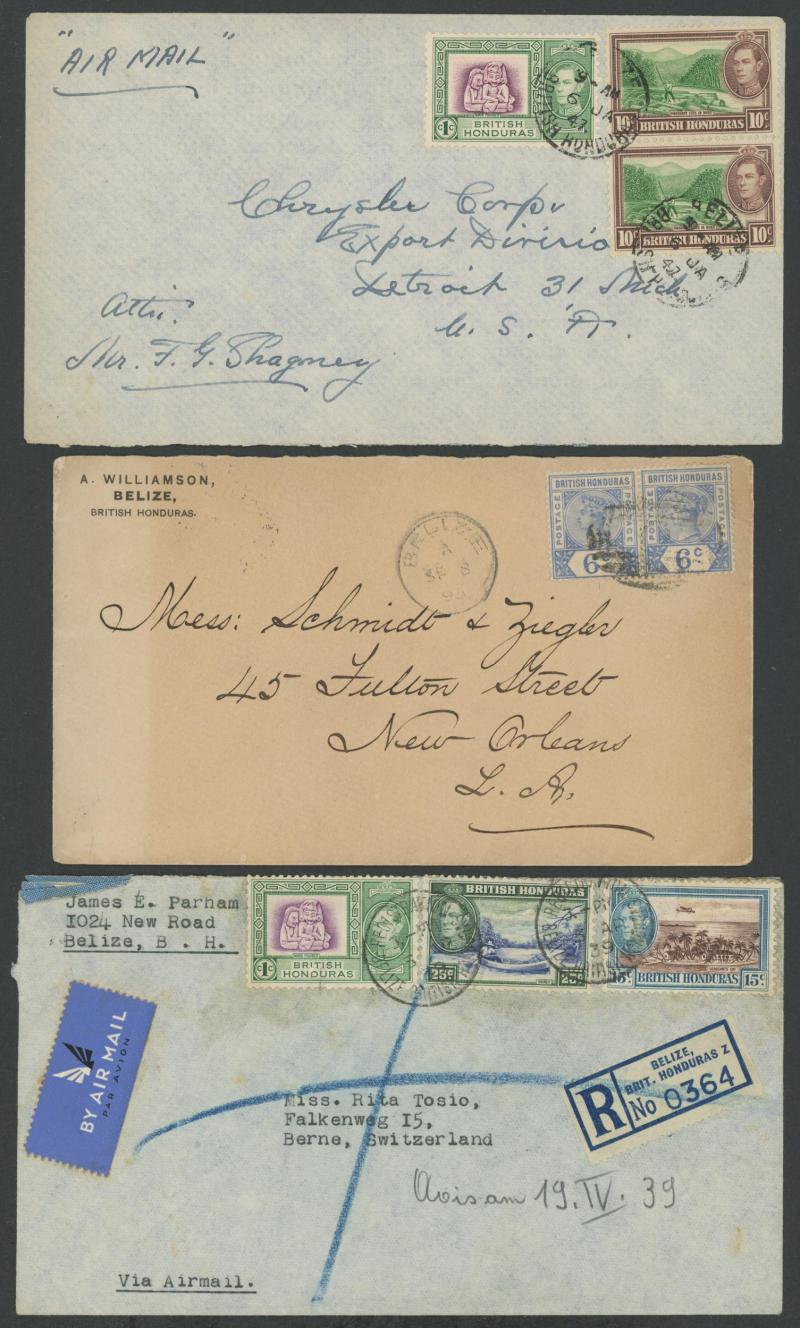 "AIR MAIL"
1c
BRITISH
HONDURAS
10c BRITISH HONDURAS 10c
10c BRITISH HONDURAS 10c
9-AM
6 JA
47
BELIZE
JA
47
Chrysler Corp.
Export Divisio
Detroit 31 Mich
U. S. A.
Attn:
Mr. F. G. Shagney
A. WILLIAMSON,
BELIZE,
BRITISH HONDURAS.
BELIZE
A
SE 8
BRITISH HONDURAS
POSTAGE
6
BRITISH HONDURAS
POSTAGE
POSTAGE
6c
Mess: Schmidt & Ziegler
45 Fulton Street
New Orleans
L. A.
James E. Parham
1024 New Road
Belize, B. H.
1c
BRITISH
HONDURAS
BRITISH HONDURAS
25c 25c
15c BRITISH HONDURAS 15c
39
BY AIR MAIL
PAR AVION
BELIZE,
BRIT. HONDURAS Z
R No 0364
Miss. Rita Tosio,
Falkenweg 15,
Berne, Switzerland
Avis am 19. IV. 39
Via Airmail.